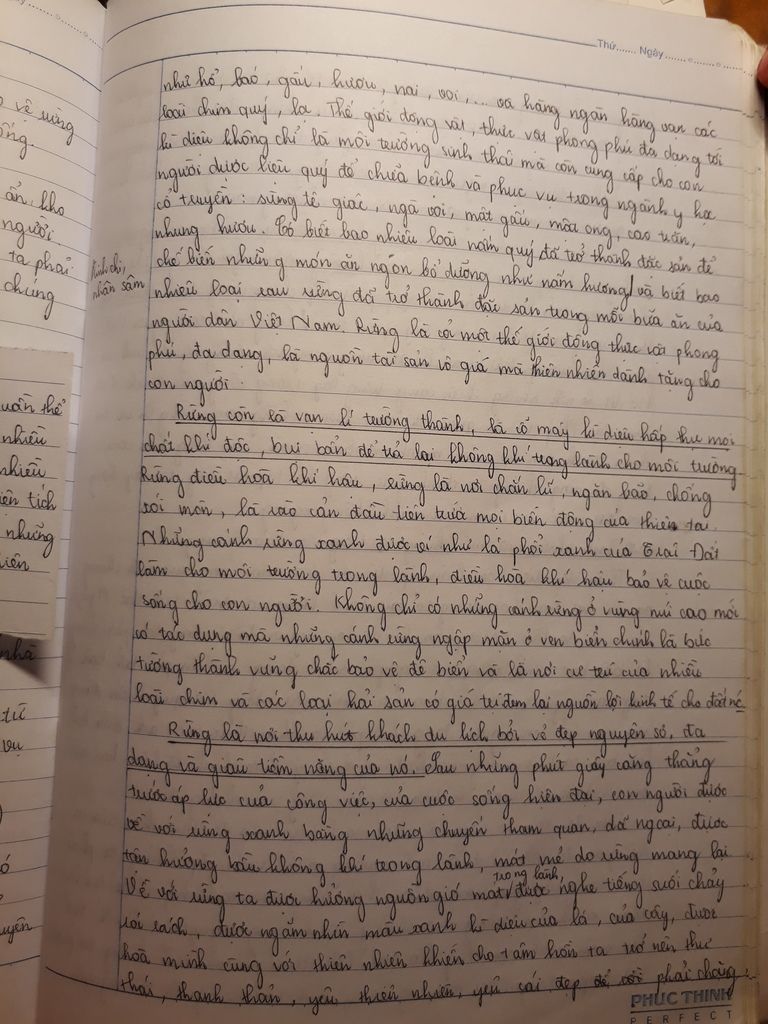 Thứ....... Ngày.......
như hổ, báo, gấu, hươu, nai, voi,... và hàng ngàn hàng vạn các
loài chim quý, lạ. Thế giới động vật, thực vật phong phú đa dạng tới
kì diệu không chỉ là môi trường sinh thái mà còn cung cấp cho con
người dược liệu quý để chữa bệnh và phục vụ trong ngành y học
cổ truyền: sừng tê giác, ngà voi, mật gấu, mật ong, cao trăn,
nhung hươu. Có biết bao nhiêu loài nấm quý đã trở thành đặc sản để
linh chi,
nhân sâm
chế biến những món ăn ngon bổ dưỡng như nấm hương/ và biết bao
nhiêu loại rau rừng đã trở thành đặc sản trong mỗi bữa ăn của
người dân Việt Nam. Rừng là cả một thế giới động thực vật phong
phú, đa dạng, là nguồn tài sản vô giá mà thiên nhiên dành tặng cho
con người.
Rừng còn là vạn lí trường thành, là cỗ máy kì diệu hấp thụ mọi
chất khí độc, bụi bẩn để trả lại không khí trong lành cho môi trường.
Rừng điều hoà khí hậu, rừng là nơi chắn lũ, ngăn bão, chống
xói mòn, là rào cản đầu tiên trước mọi biến động của thiên tai.
Những cánh rừng xanh được ví như lá phổi xanh của Trái Đất
làm cho môi trường trong lành, điều hoà khí hậu bảo vệ cuộc
sống cho con người. Không chỉ có những cánh rừng ở vùng núi cao mới
có tác dụng mà những cánh rừng ngập mặn ở ven biển chính là bức
tường thành vững chắc bảo vệ đê biển và là nơi cư trú của nhiều
loài chim và các loại hải sản có giá trị đem lại nguồn lợi kinh tế cho đất nc.
Rừng là nơi thu hút khách du lịch bởi vẻ đẹp nguyên sơ, đa
dạng và giàu tiềm năng của nó. Sau những phút giây căng thẳng
trước áp lực của công việc, của cuộc sống hiện đại, con người được
về với rừng xanh bằng những chuyến tham quan, dã ngoại, được
tận hưởng bầu không khí trong lành, mát mẻ do rừng mang lại.
trong lành,
Về với rừng ta được hưởng nguồn gió mát/ được nghe tiếng suối chảy
róc rách, được ngắm nhìn màu xanh kì diệu của lá, của cây, được
hoà mình cùng với thiên nhiên khiến cho tâm hồn ta trở nên thư
thái, thanh thản, yêu thiên nhiên, yêu cái đẹp phải chăng
PHUC THINH
PERFECT
về rừng
ống.
ăn kho
người.
ta phải
chúng
uần thể
nhiều
nhiều
ện tích
những
iên
nhà
từ
vụ
ó
uyên